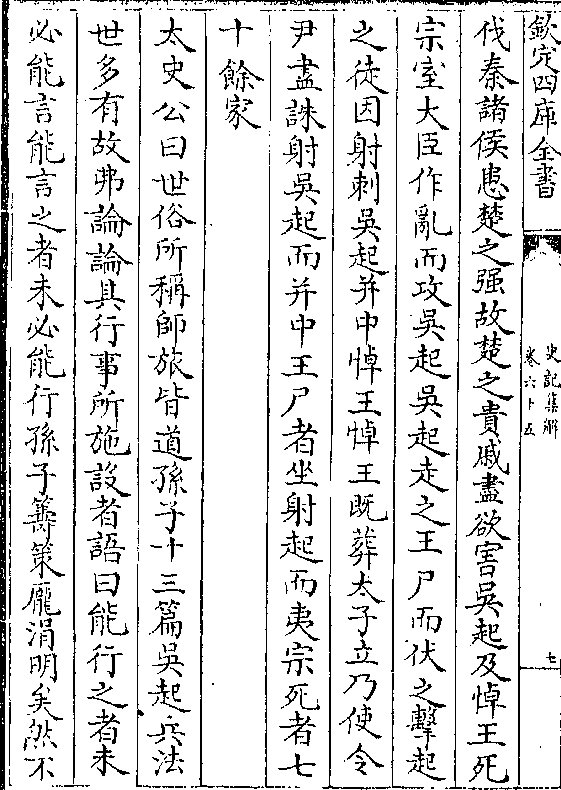 欽定四庫全書
史記集解
卷六十五
七
伐秦諸侯患楚之强故楚之貴戚盡欲害吳起及悼王死
宗室大臣作亂而攻吳起吳起走之王尸而伏之擊起
之徒因射刺吳起并中悼王悼王既葬太子立乃使令
尹盡誅射吳起而并中王尸者坐射起而夷宗死者七
十餘家
太史公曰世俗所稱師旅皆道孫子十三篇吳起兵法
世多有故弗論論其行事所施設者語曰能行之者未
必能言能言之者未必能行孫子籌策龐涓明矣然不